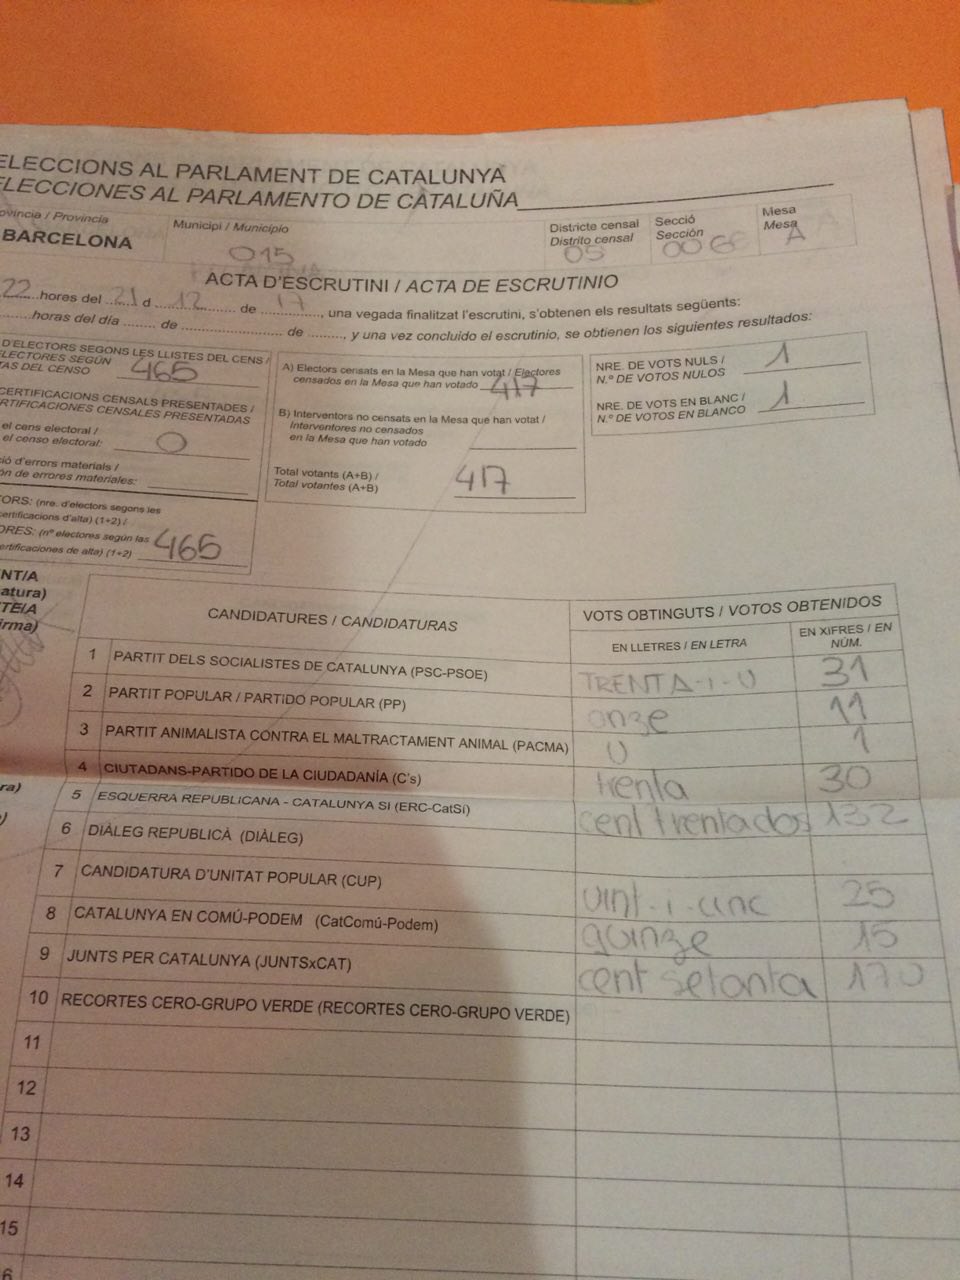 ELECCIONS AL PARLAMENT DE CATALUNYA
ELECCIONES AL PARLAMENTO DE CATALUÑA
ovíncia / Provincia
BARCELONA
Municipi / Municipio
015
Districte censal
Distrito censal
05
Secció
Sección
006
Mesa
Mesa
A
ACTA D'ESCRUTINI / ACTA DE ESCRUTINIO
22 hores del 21 d 12 de 17, una vegada finalitzat l'escrutini, s'obtenen els resultats següents:
horas del día ........ de .................... de ........, y una vez concluido el escrutinio, se obtienen los siguientes resultados:
D'ELECTORS SEGONS LES LLISTES DEL CENS /
ELECTORES SEGÚN
TAS DEL CENSO 465
CERTIFICACIONS CENSALS PRESENTADES /
RTIFICACIONES CENSALES PRESENTADAS
el cens electoral /
el censo electoral: 0
ció d'errors materials /
ón de errores materiales:
TORS: (nre. d'electors segons les
certificacions d'alta) (1+2) /
ORES: (nº electores según las
ertificaciones de alta) (1+2) 465
A) Electors censats en la Mesa que han votat / Electores
censados en la Mesa que han votado 417
B) Interventors no censats en la Mesa que han votat /
Interventores no censados
en la Mesa que han votado
Total votants (A+B) /
Total votantes (A+B) 417
NRE. DE VOTS NULS /
N.º DE VOTOS NULOS 1
NRE. DE VOTS EN BLANC /
N.º DE VOTOS EN BLANCO 1
NT/A
atura)
TE/A
irma)
CANDIDATURES / CANDIDATURAS
VOTS OBTINGUTS / VOTOS OBTENIDOS
EN LLETRES / EN LETRA
EN XIFRES / EN NÚM.
1 PARTIT DELS SOCIALISTES DE CATALUNYA (PSC-PSOE) TRENTA-I-U 31
2 PARTIT POPULAR / PARTIDO POPULAR (PP) onze 11
3 PARTIT ANIMALISTA CONTRA EL MALTRACTAMENT ANIMAL (PACMA) U 1
4 CIUTADANS-PARTIDO DE LA CIUDADANÍA (C's) trenta 30
5 ESQUERRA REPUBLICANA - CATALUNYA SÍ (ERC-CatSí) cent trentados 132
6 DIÀLEG REPUBLICÀ (DIÀLEG)
7 CANDIDATURA D'UNITAT POPULAR (CUP) vint-i-cinc 25
8 CATALUNYA EN COMÚ-PODEM (CatComú-Podem) quinze 15
9 JUNTS PER CATALUNYA (JUNTSxCAT) cent setanta 170
10 RECORTES CERO-GRUPO VERDE (RECORTES CERO-GRUPO VERDE)
11
12
13
14
15